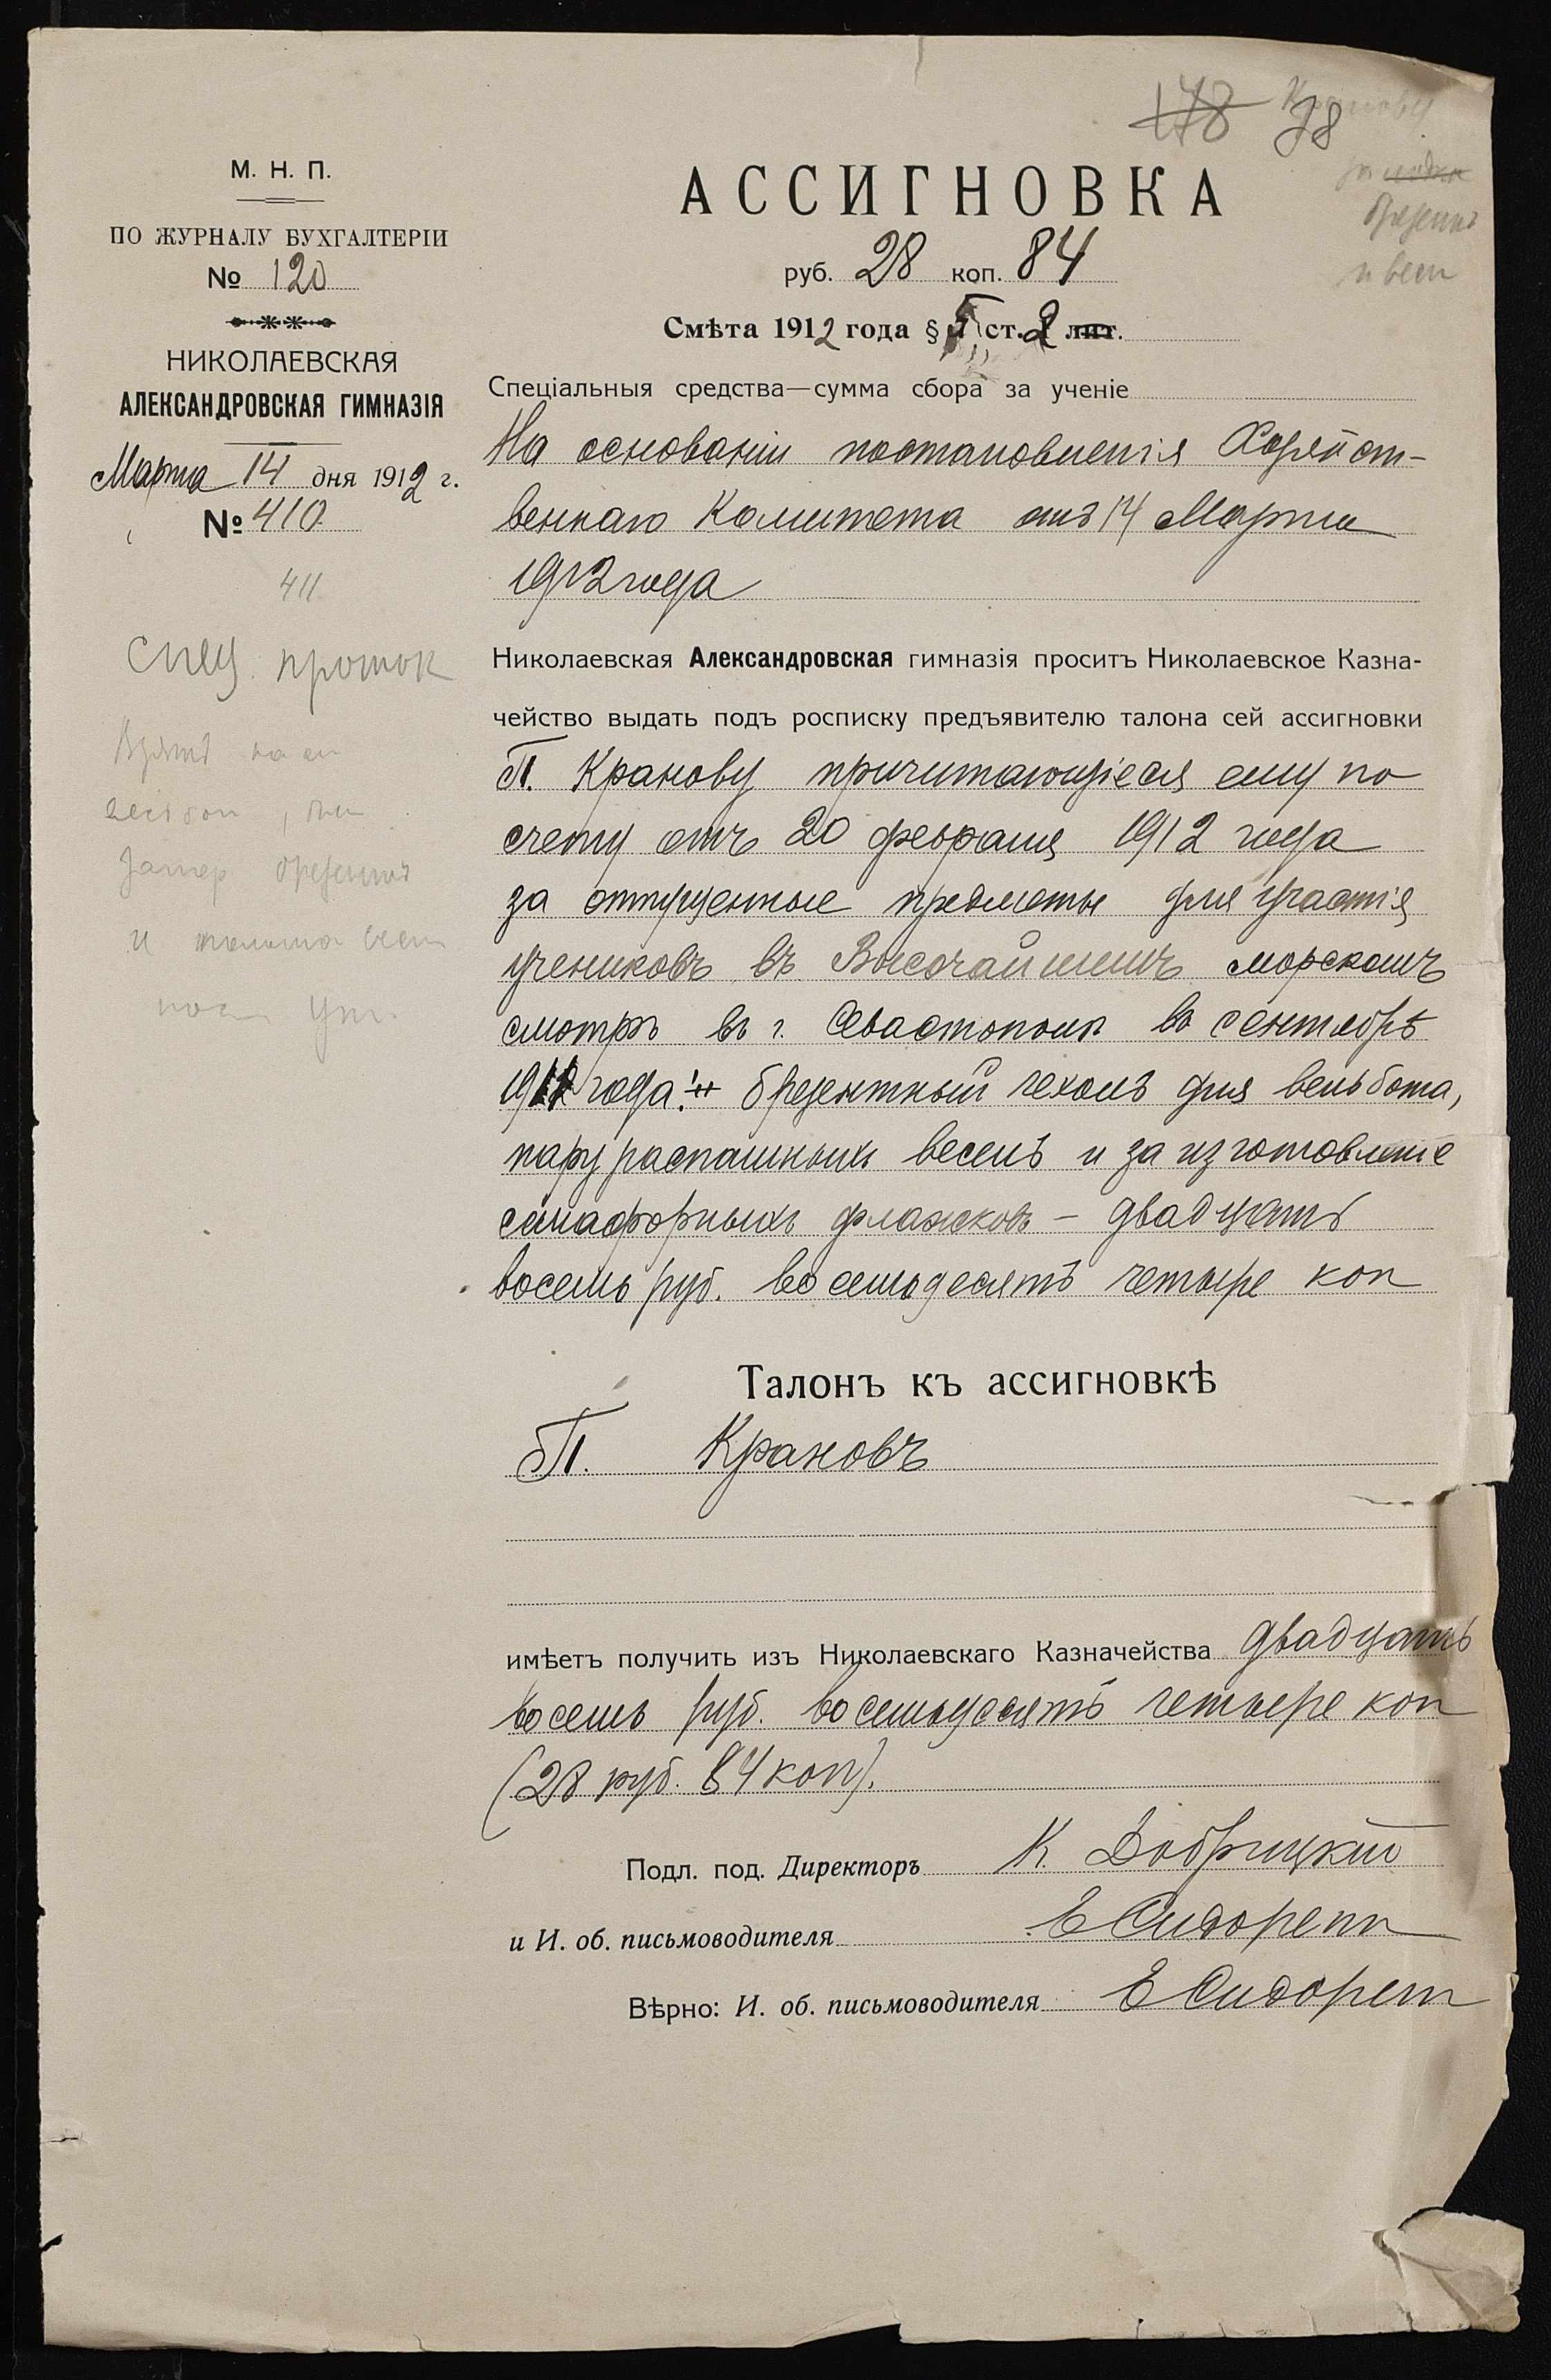 178 78
Кранову
за
брезент
и весл
М. Н. П.
ПО ЖУРНАЛУ БУХГАЛТЕРІИ
№ 120
НИКОЛАЕВСКАЯ
АЛЕКСАНДРОВСКАЯ ГИМНАЗІЯ
Марта 14 дня 1912 г.
№ 410
411
спец. проток
АССИГНОВКА
руб. 28 коп. 84
Смѣта 1912 года § 5 ст. 2 лит.
Спеціальныя средства—сумма сбора за ученіе
На основаніи постановленія Хозяйст-
веннаго Комитета отъ 14 Марта
1912 года
Николаевская Александровская гимназія проситъ Николаевское Казна-
чейство выдать подъ росписку предъявителю талона сей ассигновки
П. Кранову причитающіеся ему по
счету отъ 20 февраля 1912 года
за отпущенные предметы для участія
учениковъ въ Высочайшемъ морскомъ
смотрѣ въ г. Севастополѣ въ сентябрѣ
1911 года: брезентный чехолъ для вельбота,
пару распашныхъ веселъ и за изготовленіе
семафорныхъ флажковъ – двадцать
восемь руб. восемьдесятъ четыре коп
Талонъ къ ассигновкѣ
П. Крановъ
имѣетъ получить изъ Николаевскаго Казначейства двадцать
восемь руб. восемьдесятъ четыре коп
(28 руб. 84 коп).
Подл. под. Директоръ К. Добрицкій
и И. об. письмоводителя Е Сидорен
Вѣрно: И. об. письмоводителя Е Сидорен